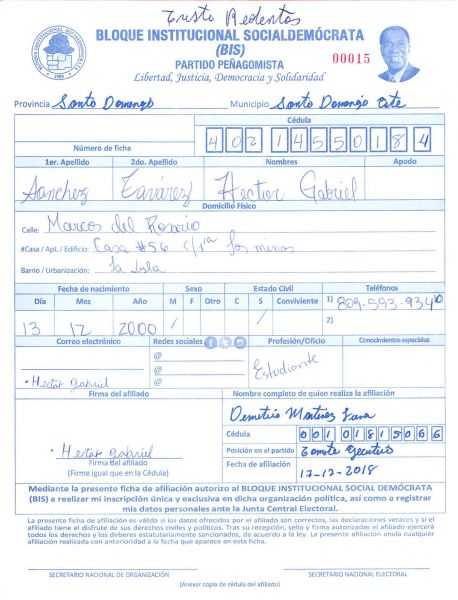 Cristo Redentor
BLOQUE INSTITUCIONAL SOCIALDEMÓCRATA
(BIS)
PARTIDO PEÑAGOMISTA
00015
Libertad, Justicia, Democracia y Solidaridad
Provincia Santo Domingo Municipio Santo Domingo Este
Cédula
Número de ficha 402 1455018 4
1er. Apellido 2do. Apellido Nombres Apodo
Sanchez Tavárez Hector Gabriel
Domicilio Físico
Calle: Marcos del Rosario
#Casa / Apt. / Edificio: Casa #56 c/1ra los minas
Barrio / Urbanización: La Isla
Fecha de nacimiento Sexo Estado Civil Teléfonos
Día Mes Año M F Otro C S Conviviente 1) 809-593-9340
13 12 2000 / / 2)
Correo electrónico Redes sociales Profesión/Oficio Conocimientos especiales
@
@
@
Estudiante
Hector Gabriel
Firma del afiliado Nombre completo de quien realiza la afiliación
Demetrio Martinez
Cédula 001 0181506 6
Hector gabriel Posición en el partido Comite Ejecutivo
Firma del afiliado
(Firme igual que en la Cédula) Fecha de afiliación 17-12-2018
Mediante la presente ficha de afiliación autorizo al BLOQUE INSTITUCIONAL SOCIAL DEMÓCRATA
(BIS) a realizar mi inscripción única y exclusiva en dicha organización política, así como a registrar
mis datos personales ante la Junta Central Electoral.
La presente ficha de afiliación es válida si los datos ofrecidos por el afiliado son correctos, las declaraciones veraces y si el
afiliado tiene el disfrute de sus derechos civiles y políticos. Tras su recepción, sello y firma autorizadas el afiliado ejercerá
todos los derechos y los deberes estatutariamente sancionados, de acuerdo a la ley. La presente afiliación anula cualquier
afiliación realizada con anterioridad a la fecha que aparece en esta ficha.
SECRETARIO NACIONAL DE ORGANIZACIÓN SECRETARIO NACIONAL ELECTORAL
(Anexar copia de cédula del afiliado)